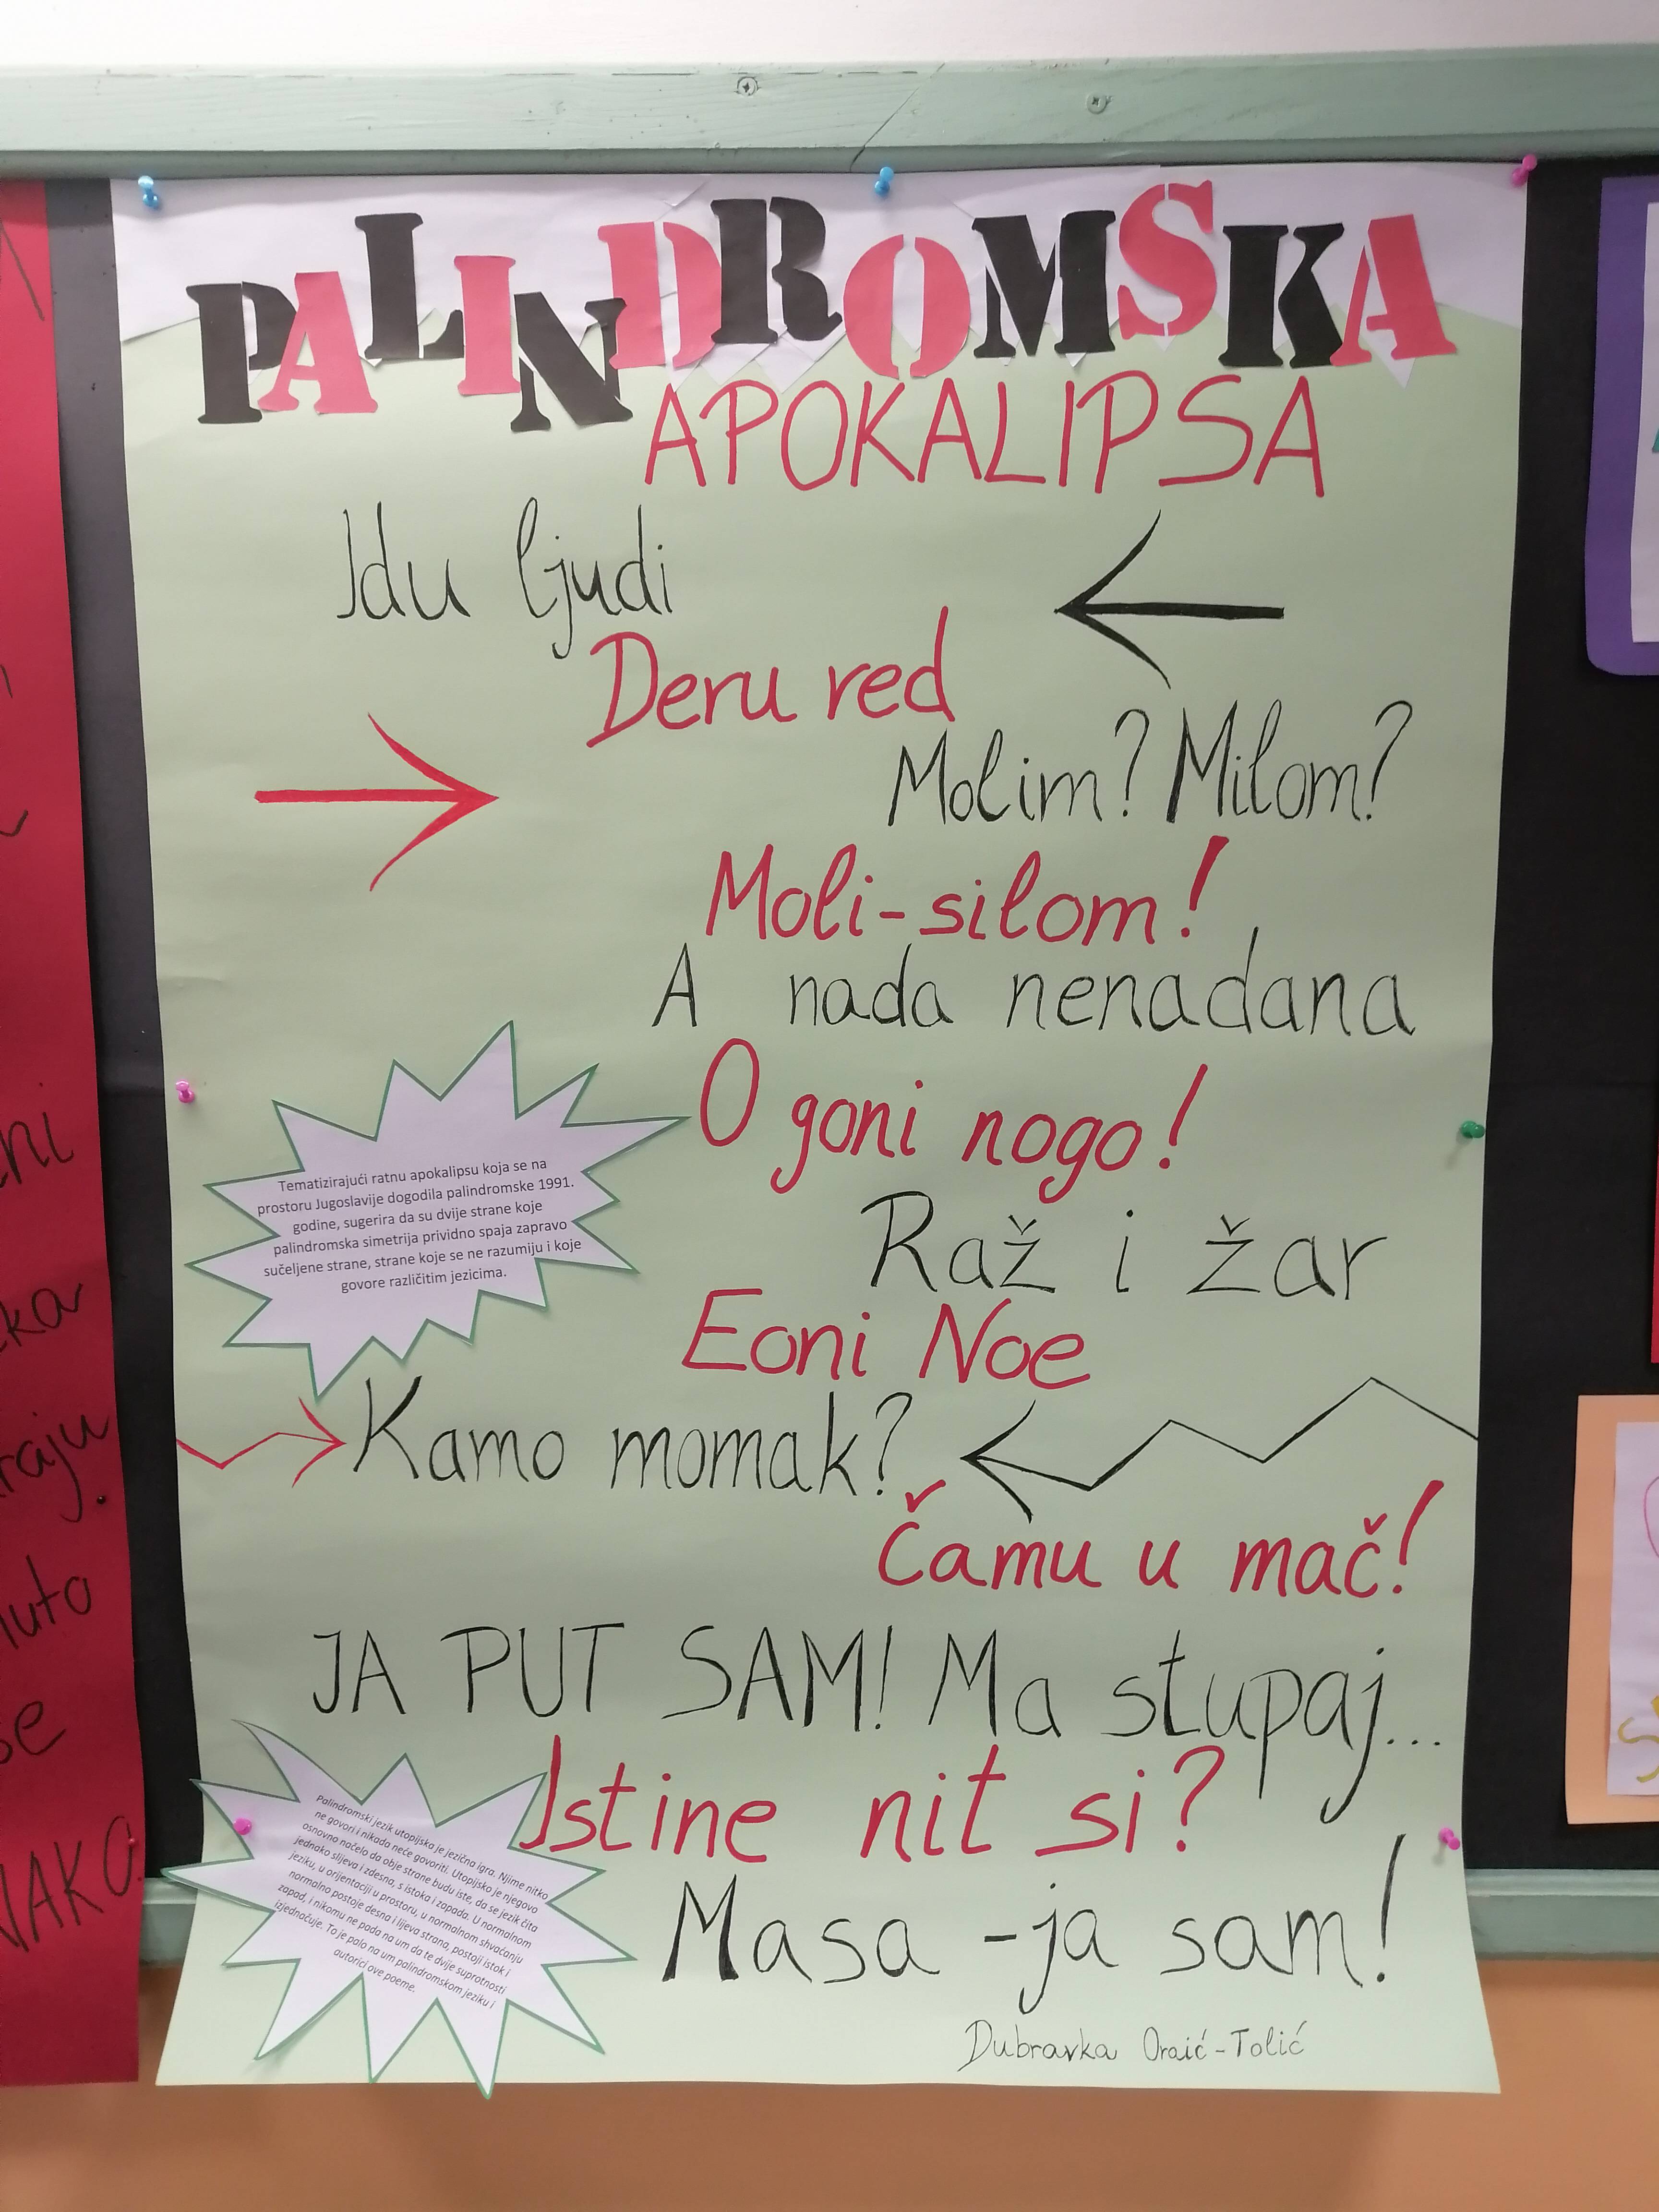 PALINDROMSKA
APOKALIPSA
Idu ljudi
Deru red
Molim? Milom?
Moli-silom!
A nada nenadana
O goni nogo!
Tematizirajući ratnu apokalipsu koja se na
prostoru Jugoslavije dogodila palindromske 1991.
godine, sugerira da su dvije strane koje
palindromska simetrija prividno spaja zapravo
sučeljene strane, strane koje se ne razumiju i koje
govore različitim jezicima.
Raž i žar
Eoni Noe
Kamo momak?
Čamu u mač!
JA PUT SAM! Ma stupaj...
Istine nit si?
Masa -ja sam!
Palindromski jezik utopijska je jezična igra. Njime nitko
ne govori i nikada neće govoriti. Utopijsko je njegovo
osnovno načelo da obje strane budu iste, da se jezik čita
jednako slijeva i zdesna, s istoka i zapada. U normalnom
jeziku, u orijentaciji u prostoru, u normalnom shvaćanju
normalno postoje desna i lijeva strana, postoji istok i
zapad, i nikomu ne pada na um da te dvije suprotnosti
izjednačuje. To je palo na um palindromskom jeziku i
autorici ove poeme.
Dubravka Oraić-Tolić
ni
ka
raju
uto
se
NAKO